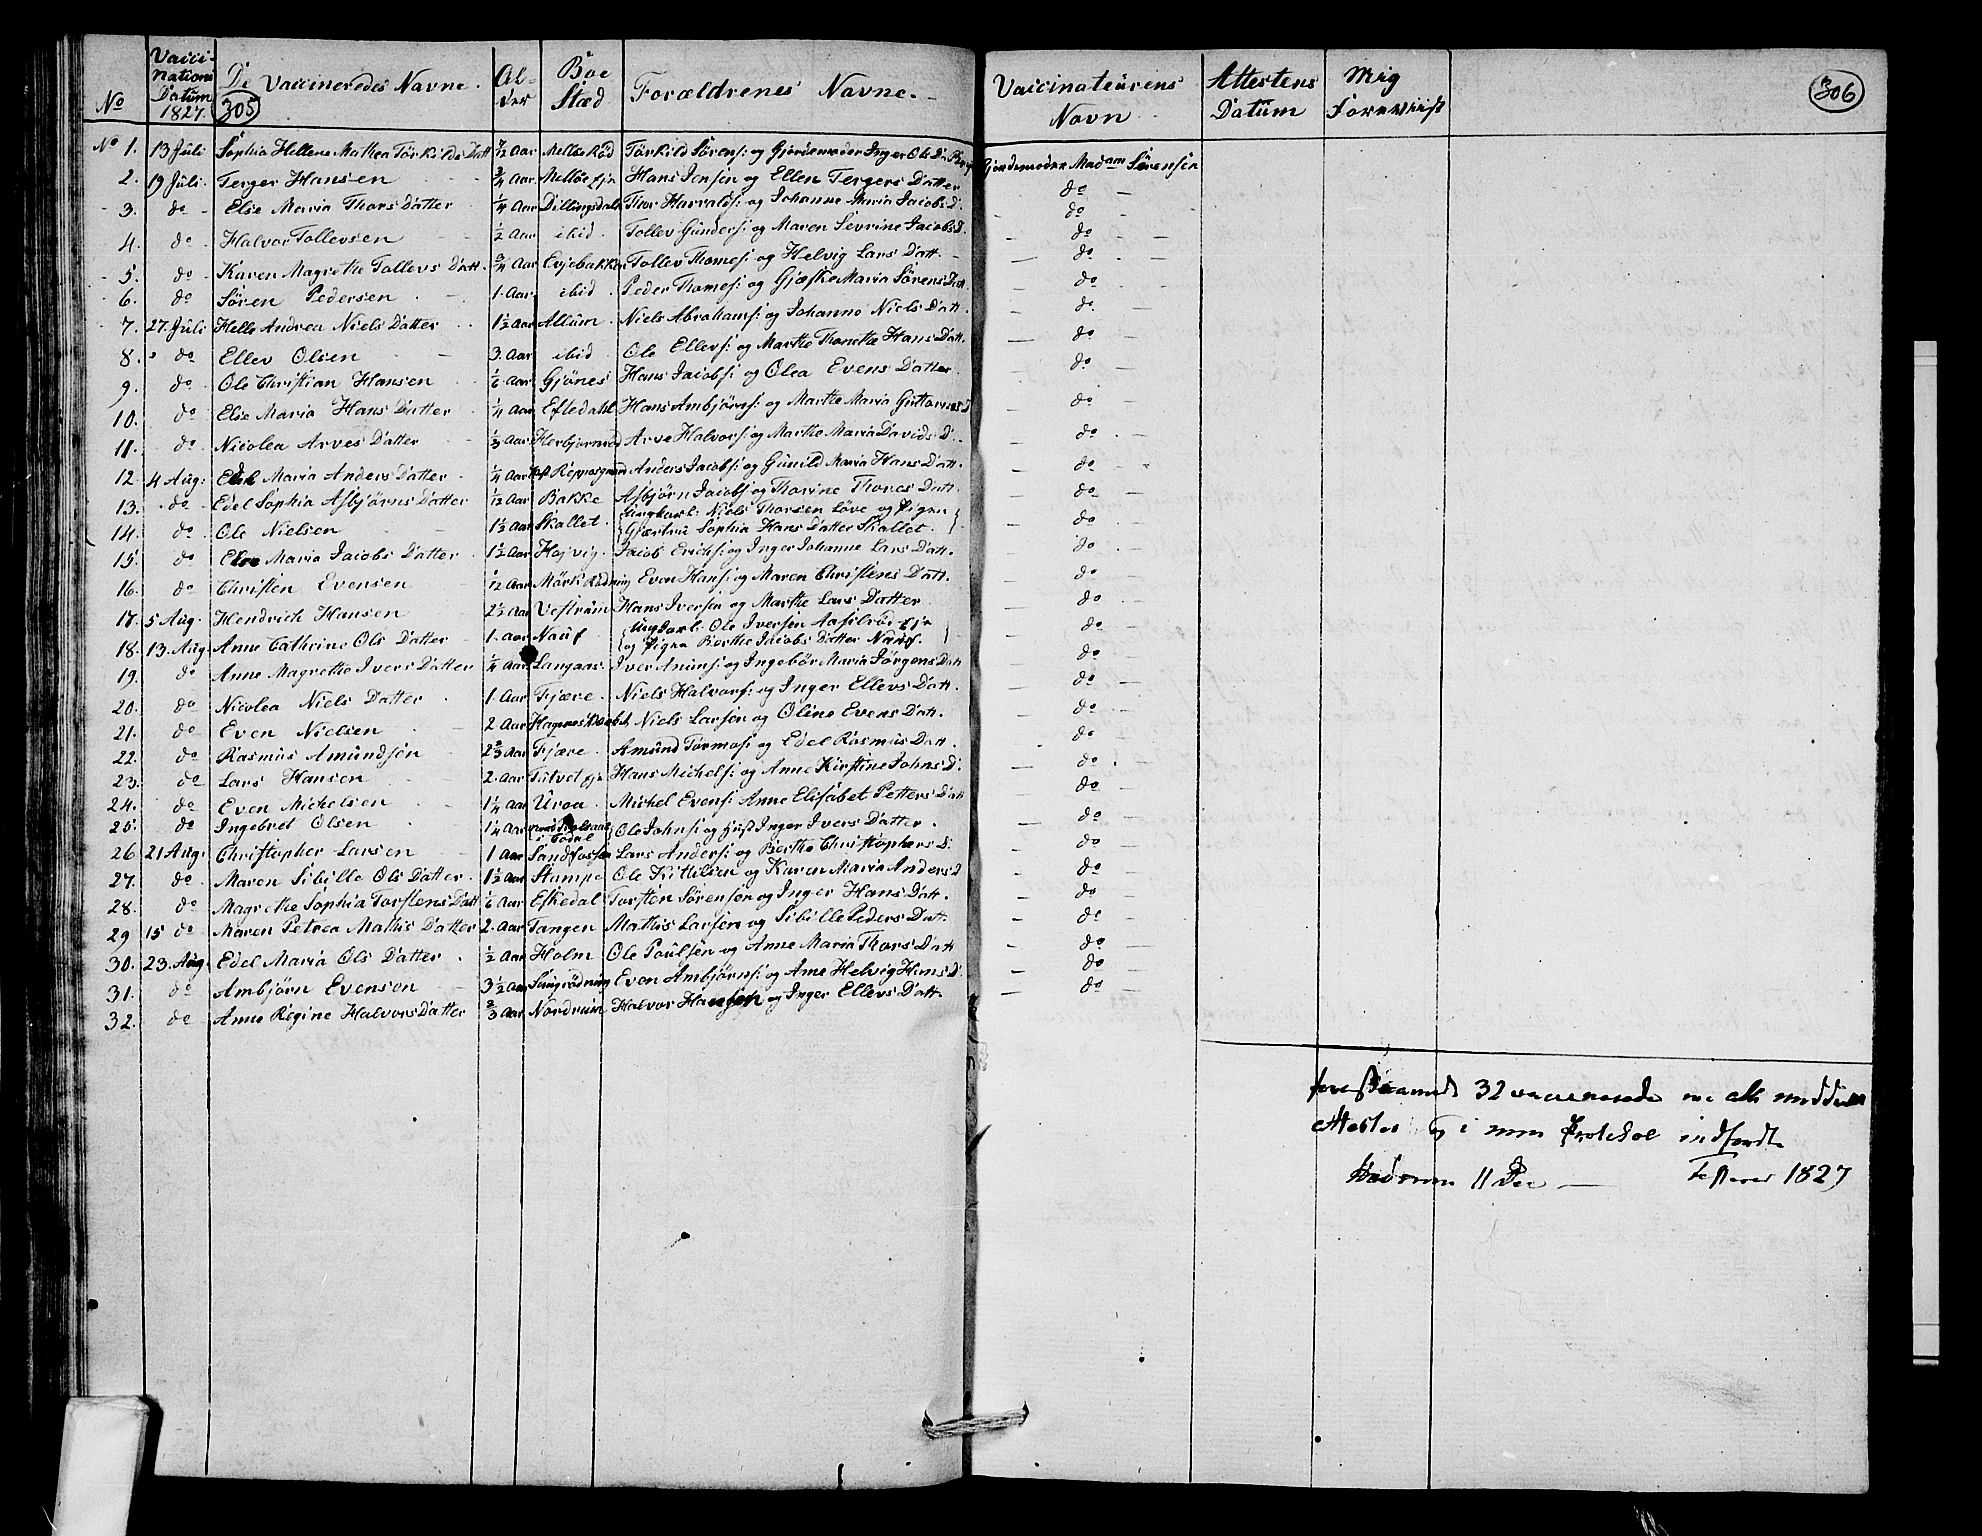 No | Vaccinations Datum 1827. | De Vaccineredes Navne. | Alder | Boe Stæd | Forældrenes Navne. | Vaccinateurens Navn | Attestens Datum | Mig Foreviist
305 306
No 1. 13 Juli Sophia Hellene Mathea Törkilds Datt 7/12 Aar Melløs Röd Törkild Sörens: og Gjordemoder Inger Ols D. Gjordemoder Madam Sörensen
2. 19 Juli. Terger Hansen 3/4 Aar Melløs Eje Hans Jensen og Ellen Tergers Datter do
3. do Else Maria Thors Datter 1/4 Aar Dillingsdale Thor Harvalds: og Johanne Maria Jacobs D. do
4. do Halvor Tollevsen 1/2 Aar ibid. Tollev Gunders: og Maren Sevrine Jacobs D. do
5. do Karen Magrethe Tollevs Datt. 3/4 Aar Evjebakken Tollev Thomes: og Helvig Lars Datt. do
6. do Sören Pedersen 1. Aar ibid Peder Thomes: og Gjæske Maria Sörens Datt do
7. 27. Juli Helle Andrea Niels Datter 1 1/2 Aar Allum Niels Abrahams: og Johanne Niels Datt. do
8. do Ellev Olsen 3. Aar ibid Ole Ellevs: og Marthe Thonette Hans Datt. do
9. do Ole Christian Hansen 1/6 Aar Gjönes Hans Jacobs: og Olea Evens Datter do
10. do Else Maria Hans Datter 1/4 Aar Efledahl Hans Ambjörns: og Marthe Maria Guttorms D do
11. do Nicolea Arves Datter 1/3 Aar Herbjörnröd Arve Halvors: og Marthe Maria Davids D. do
12. 4 Aug: Maria Anders Datter 1/4 Aar Anders Jacobs: og Gunild Maria Hans Datt. do
13. do Edel Sophia Asbjörns Datter 1/12 Aar Bakke Asbjörn Jacobs og Thorine Thores Datt. do
14. do Ole Nielsen 1 1/2 Aar Skallet. Ungkarl: Niels Thorsen Löve og Pigen Gjertrü Sophia Hans Datter Skallet. do
15. do Maria Jacobs Datter 1 1/2 Aar Hojvig Jacob Erichs: og Inger Johanne Lars Datt. do
16. do Christen Evensen 1/12 Aar Mörk Rödning Even Hans: og Maren Christens Datt. do
17. 5 Aug. Hendrich Hansen 2 1/2 Aar Vestrüm Hans Iversen og Marthe Lars Datter do
18. 13. Aug Anne Cathrine Ols Datter 1. Aar Nauf Ungkarl: Ole Iversen Eje og Pigen Berthe Jacobs Datter Nauf. do
19. do Anne Magrethe Ivers Datter 1/4 Aar Langaas Iver Anuns: og Ingebör Maria Jörgens Datt do
20. do Nicolea Niels Datter 1 Aar Fjære. Niels Halvors: og Inger Ellevs Datt. do
21. do Even Nielsen 2 Aar Niels Larsen og Oline Evens Datt. do
22. do Rasmus Amundsen 2 2/3 Aar Fjære Amund Tormos: og Edel Rasmus Datt. do
23. do Lars Hansen 2. Aar Tilvet eje Hans Michels: og Anne Kirstine Johns D. do
24. do Even Michelsen 1 1/4 Aar Uraa Michel Evens: Anne Elisabet Petters Datt do
25. do Ingebret Olsen 1 1/4 Aar Ole Johns: og Hust Inger Ivers Datter. do
26. 21 Aug: Christopher Larsen 1 Aar Sandfossen Lars Anders: og Berthe Christophers D: do
27. do Maren Sibille Ols Datter. 1 1/2 Aar Stampe Ole Kittilsen og Karen Maria Anders D do
28. do Magrethe Sophia Torstens Datt 1/6 Aar Efkedal Torsten Sörensen og Inger Hans Datt. do
29 15 do Maren Petrea Mathis Datter 2. Aar Tangen Mathis Larsen og Sibille Peders Datt. do
30. 23. Aug. Edel Maria Ols Datter 1/2 Aar Holm Ole Paulsen og Anne Maria Thors Datt do
31. do Ambjörn Evensen 3 1/2 Aar Even Ambjörns: og Ane Helvig Hans D. do
32. do Anne Regine Halvors Datter 2/3 Aar Nordrüm Halvor Hansen og Inger Ellevs Datt. do
32 vaccinerede
Attester og i min Protokol indfördt
11 1827